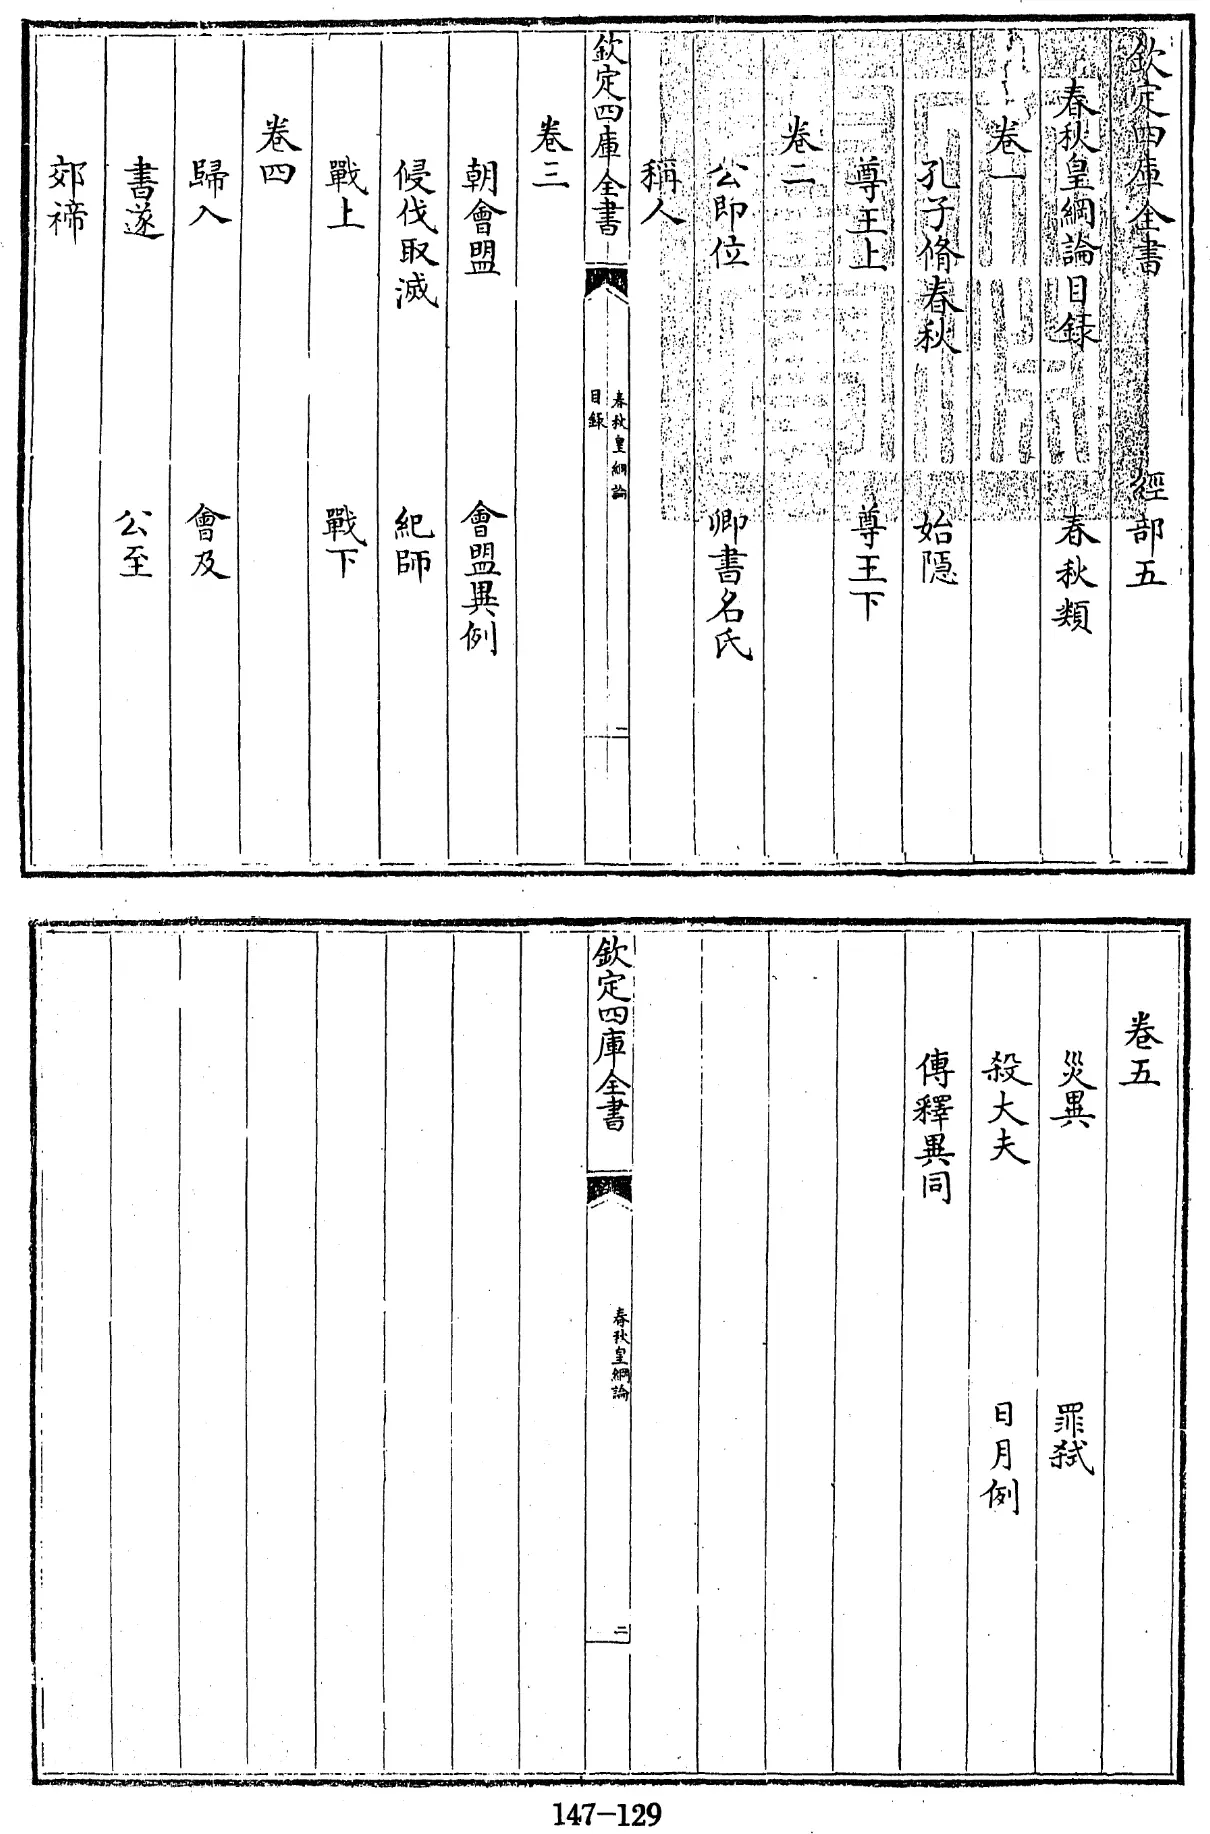 欽定四庫全書 經部五
春秋皇綱論目錄 春秋類
卷一
孔子脩春秋 始隱
尊王上 尊王下
卷二
公即位 卿書名氏
稱人
欽定四庫全書
春秋皇綱論
目錄
一
卷三
朝會盟 會盟異例
侵伐取滅 紀師
戰上 戰下
卷四
歸入 會及
書遂 公至
郊禘
卷五
災異 罪弑
殺大夫 日月例
傳釋異同
欽定四庫全書
春秋皇綱論
二
147-129